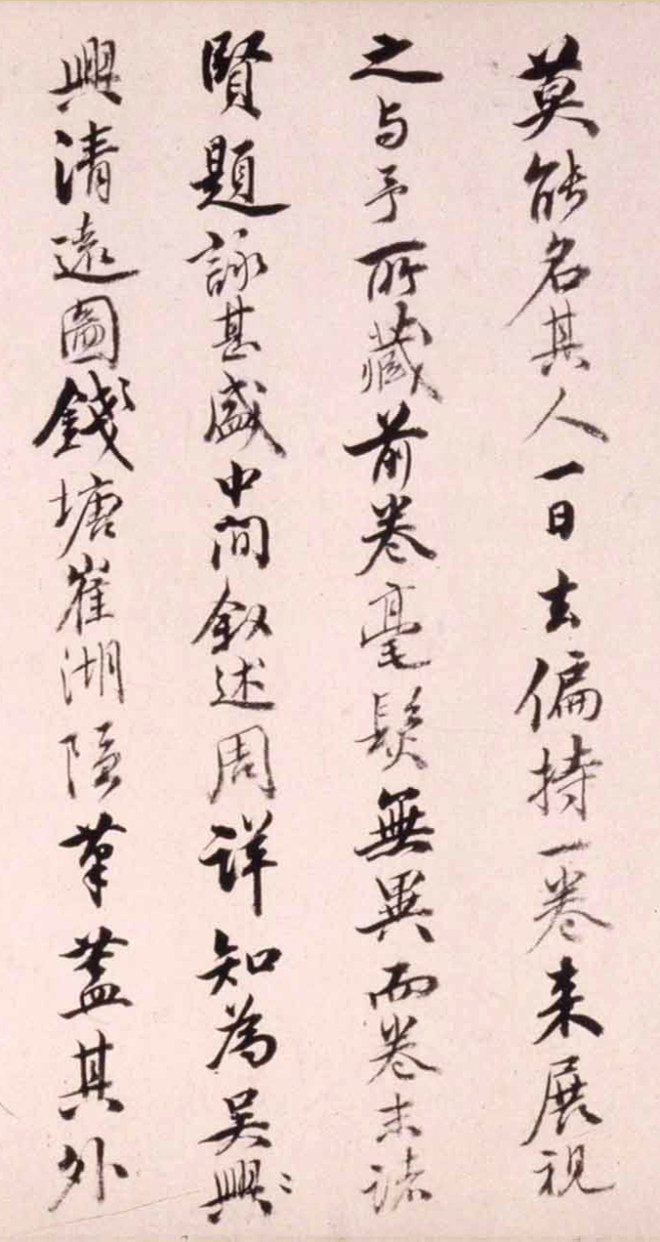 莫能名其人一日去偏持一卷来展視
之与予所藏前卷毫髮無異而卷末諸
賢題詠甚盛中間叙述周詳知為吴興〻
興清遠圖錢塘崔湖隠筆蓋其外